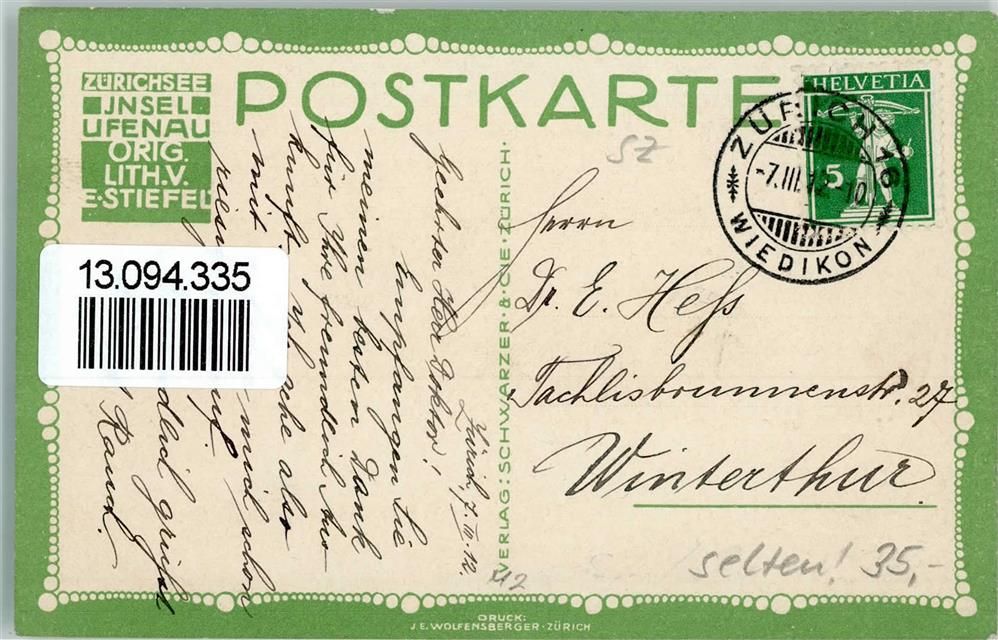 ZÜRICHSEE
JNSEL
UFENAU
ORIG.
LITH.V.
E·STIEFEL
POSTKARTE
HELVETIA
5
ZÜRICH 16
-7.III.12-10
WIEDIKON
SZ
13.094.335
Zürich, 7. III. 12.
Geehrter Herr Doktor!
Empfangen Sie
meinen besten Dank
für Ihre freundlich Aus
kunft. Ich sehe also
mit
mich schon
auf.
grüsst
Rauch.
VERLAG: SCHWARZER·&·CIE·ZÜRICH·
Herrn
Dr. E. Hess
Tachlisbrunnenstr. 27
Winterthur.
selten! 35,-
M2
DRUCK:
J.E. WOLFENSBERGER·ZÜRICH